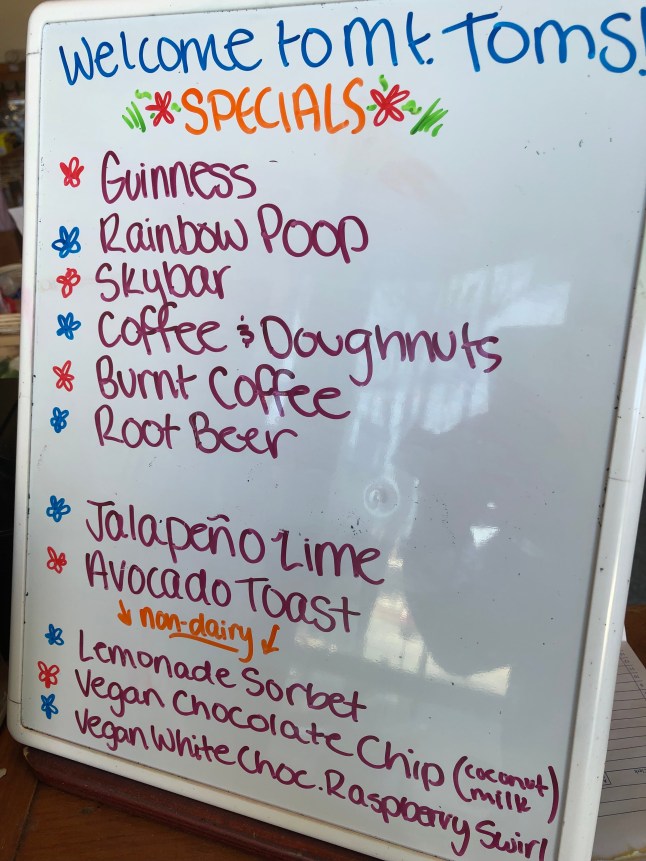 Welcome to Mt. Toms!
SPECIALS
Guinness
Rainbow Poop
Skybar
Coffee & Doughnuts
Burnt Coffee
Root Beer
Jalapeño Lime
Avocado Toast
non-dairy
Lemonade Sorbet
Vegan Chocolate Chip (coconut milk)
Vegan White Choc. Raspberry Swirl